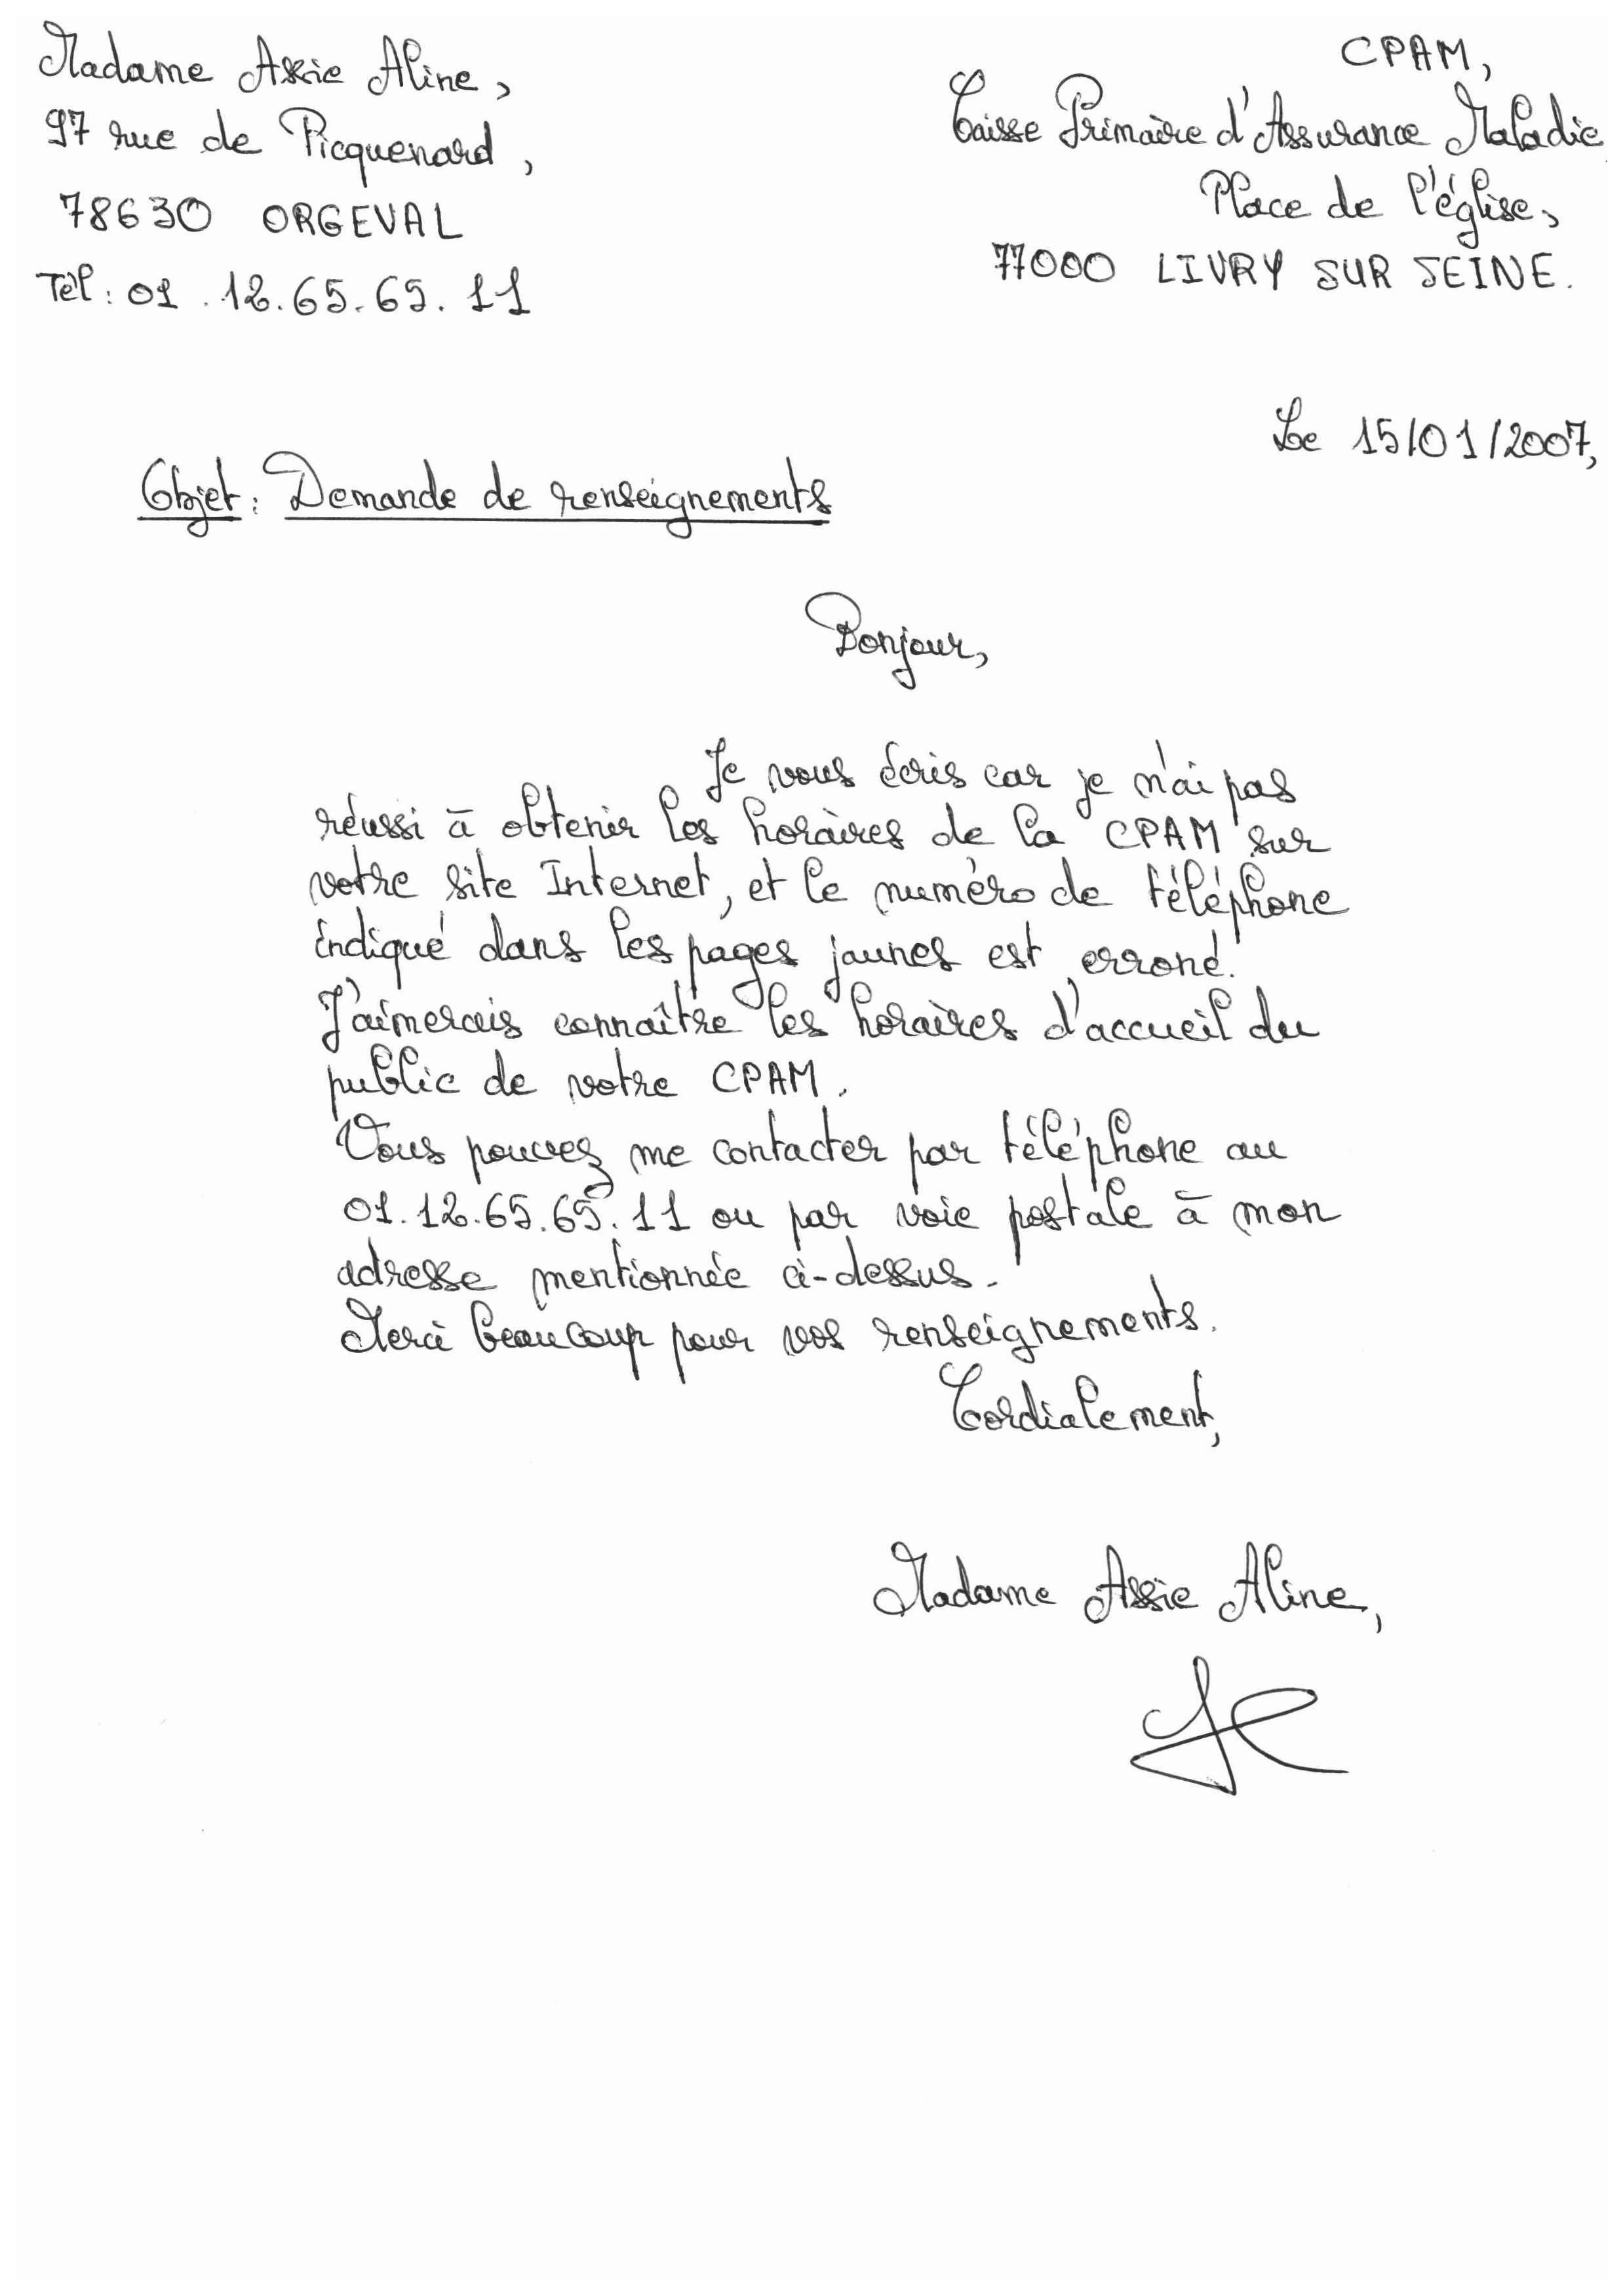 Madame Assie Aline,
97 rue de Picquenard,
78630 ORGEVAL
Tél : 01.12.65.65.11
CPAM,
Caisse Primaire d'Assurance Maladie
Place de l'église,
77000 LIVRY SUR SEINE.
Le 15/01/2007,
Objet : Demande de renseignements
Bonjour,
Je vous écris car je n'ai pas
réussi à obtenir les horaires de la CPAM sur
votre site Internet, et le numéro de téléphone
indiqué dans les pages jaunes est erroné.
J'aimerais connaître les horaires d'accueil du
public de votre CPAM.
Vous pouvez me contacter par téléphone au
01.12.65.65.11 ou par voie postale à mon
adresse mentionnée ci-dessus.
Merci beaucoup pour vos renseignements.
Cordialement,
Madame Assie Aline,